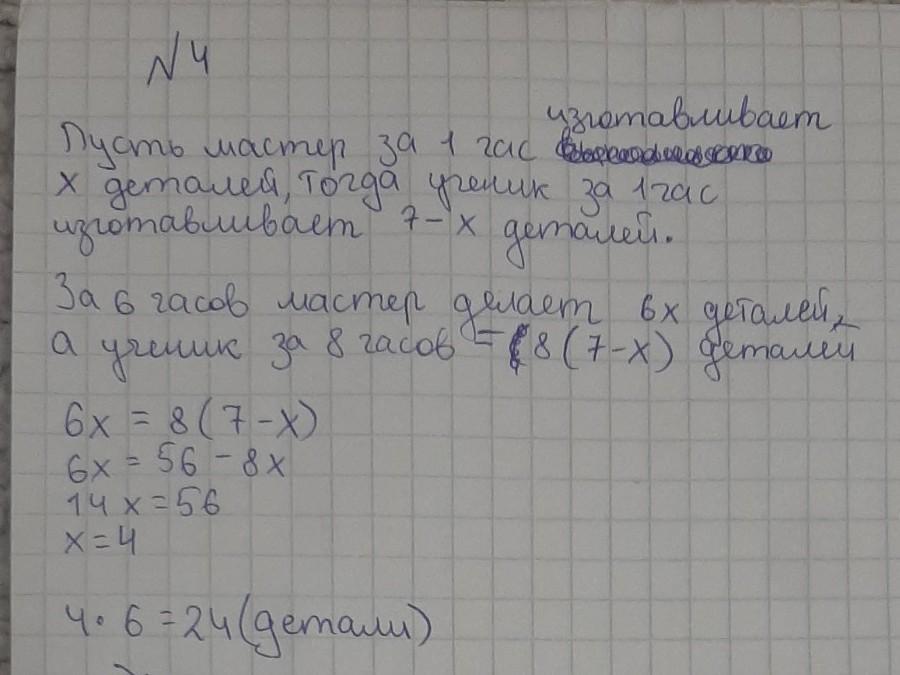 N4
изготавливает
Пусть мастер за 1 час
x деталей, тогда ученик за 1 час
изготавливает 7-x деталей.
За 6 часов мастер делает 6x деталей,
а ученик за 8 часов - 8(7-x) деталей
6x = 8(7-x)
6x = 56 - 8x
14x = 56
x = 4
4 · 6 = 24 (детали)